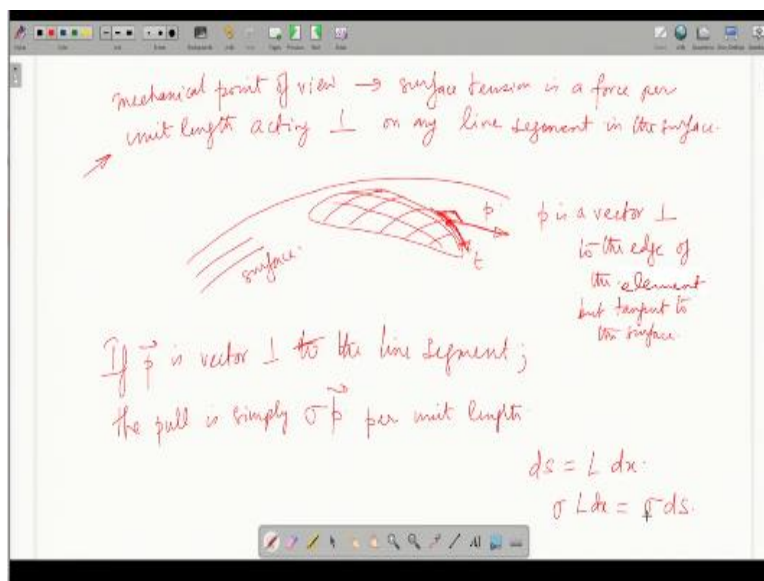 mechanical point of view → surface tension is a force per
unit length acting ⊥ on any line segment in the surface.
p
t
surface
p is a vector ⊥
to the edge of
the element
but tangent to
the surface.
If p⃗ is vector ⊥ to the line segment;
the pull is simply σp⃗ per unit length
ds = L dx.
σ L dx = σ ds.
AI